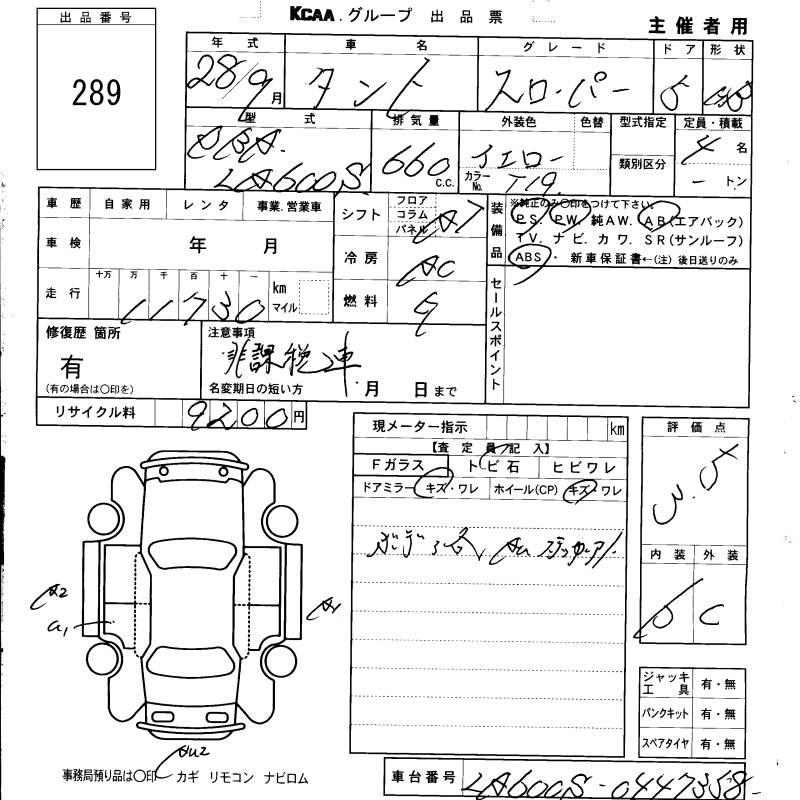 KCAA.グループ 出品票
主催者用
出品番号
289
年式 車名 グレード ドア 形状
28/9月 タント スローパー 5
型式 排気量 外装色 色替 型式指定 定員・積載
類別区分
DBA-LA600S 660 C.C. イエロー カラーNo. T19 4名
－トン
車歴 自家用 レンタ 事業.営業車
車検 年 月
走行 十万 万 千 百 十 一 km マイル
11730
シフト フロア コラム パネル AT
冷房 AC
燃料 G
装備品 ※純正のみ〇印をつけて下さい。
PS. PW. 純AW. AB(エアバック)
TV. ナビ. カワ. SR(サンルーフ)
ABS・新車保証書←(注)後日送りのみ
セールスポイント
修復歴 箇所
有
(有の場合は〇印を)
注意事項
非課税車
名変期日の短い方 月 日まで
リサイクル料 9200円
現メーター指示 km
【査定員記入】
Fガラス トビ石 ヒビワレ
ドアミラー キズ・ワレ ホイール(CP) キズ・ワレ
評価点
3.5
内装 外装
C
A2
a1
A1
AU2
ジャッキ工具 有・無
パンクキット 有・無
スペアタイヤ 有・無
事務局預り品は〇印 カギ リモコン ナビロム
車台番号 LA600S-0447358-